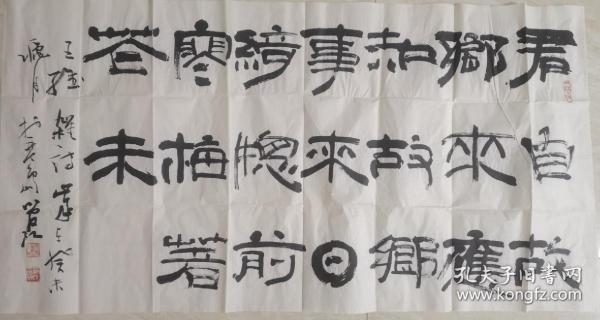 君自故
鄉來應
知故鄉
事來日
綺牕前
寒梅著
花未
王維雜詩歲在癸未
月於
孔夫子旧书网
www.kongfz.com